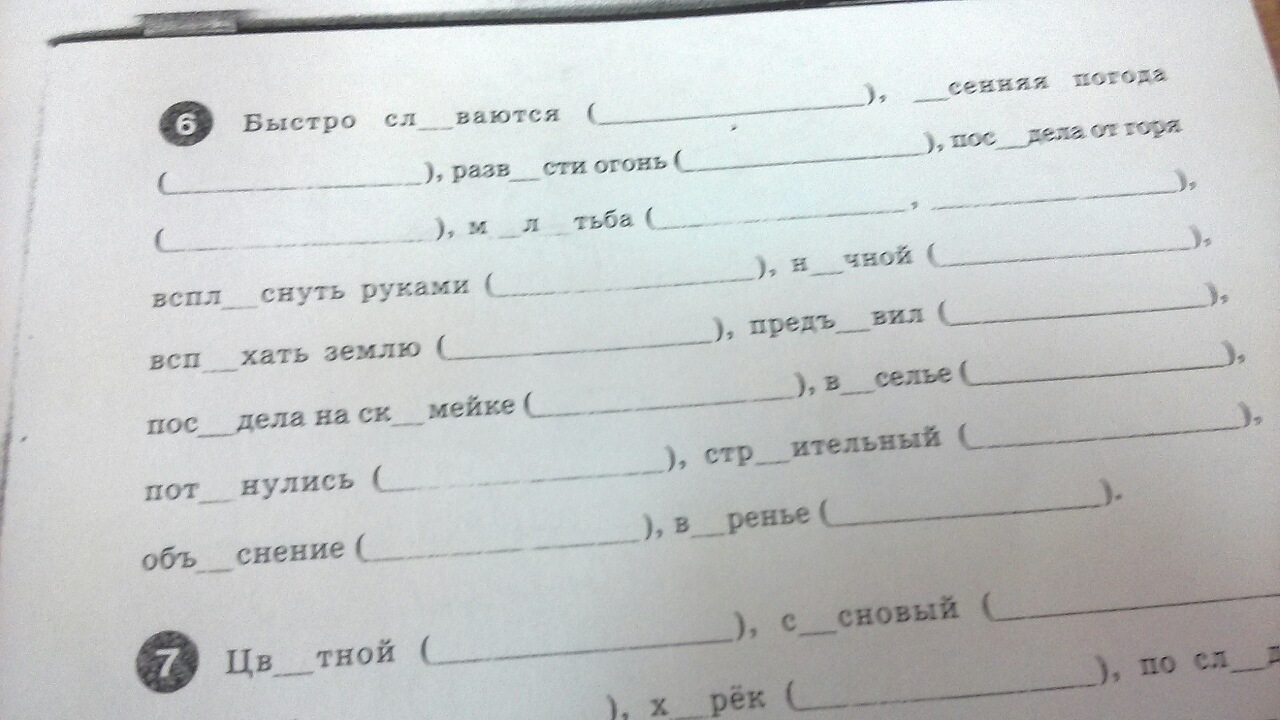 6 Быстро сл__ваются (__________), __сенняя погода
(__________), разв__сти огонь (__________), пос__дела от горя
(__________), м__л__тьба (__________, __________),
вспл__снуть руками (__________), н__чной (__________),
всп__хать землю (__________), предъ__вил (__________),
пос__дела на ск__мейке (__________), в__селье (__________),
пот__нулись (__________), стр__ительный (__________),
объ__снение (__________), в__ренье (__________).
7 Цв__тной (__________), с__сновый (__________
), х__рёк (__________), по сл__д